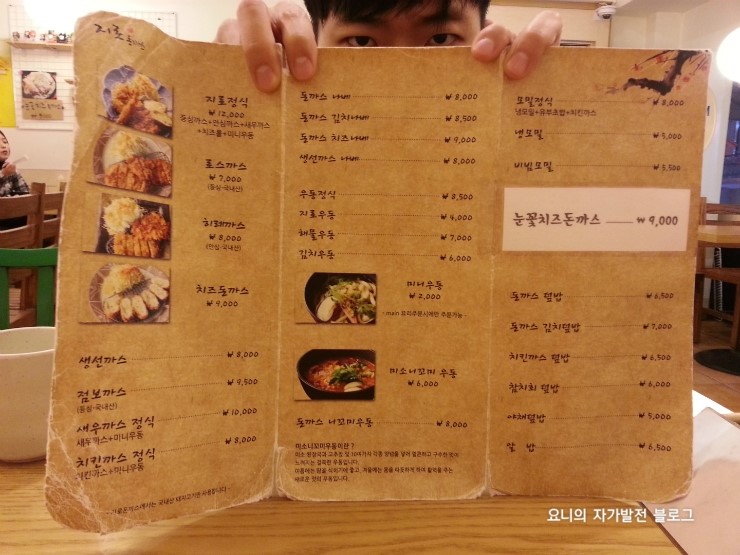 지로
지로정식
₩ 12,000
등심까스+안심까스+새우까스
+치즈롤+미니우동
로스까스
₩ 7,000
(등심·국내산)
히레까스
₩ 8,000
(안심·국내산)
치즈돈까스
₩ 9,000
생선까스 ₩ 8,000
점보까스 ₩ 9,500
(등심·국내산)
새우까스 정식 ₩ 10,000
새우까스+미니우동
치킨까스 정식 ₩ 8,000
치킨까스+미니우동
돈까스 나베 ₩ 8,000
돈까스 김치나베 ₩ 8,500
돈까스 치즈나베 ₩ 9,000
생선까스 나베 ₩ 8,000
우동정식 ₩ 8,500
지로우동 ₩ 4,000
해물우동 ₩ 7,000
김치우동 ₩ 6,000
미니우동
₩ 2,000
- main 요리주문시에만 주문가능 -
미소니꼬미 우동
₩ 6,000
돈까스 니꼬미우동 ₩ 8,000
미소니꼬미우동이란 ?
모밀정식 ₩ 8,000
냉모밀+유부초밥+치킨까스
냉모밀 ₩ 5,000
비빔모밀 ₩ 5,500
눈꽃치즈돈까스 ₩ 9,000
돈까스 덮밥 ₩ 6,500
돈까스 김치덮밥 ₩ 7,000
치킨까스 덮밥 ₩ 6,500
참치회 덮밥 ₩ 6,000
야채덮밥 ₩ 5,000
알 밥 ₩ 6,500
요니의 자가발전 블로그